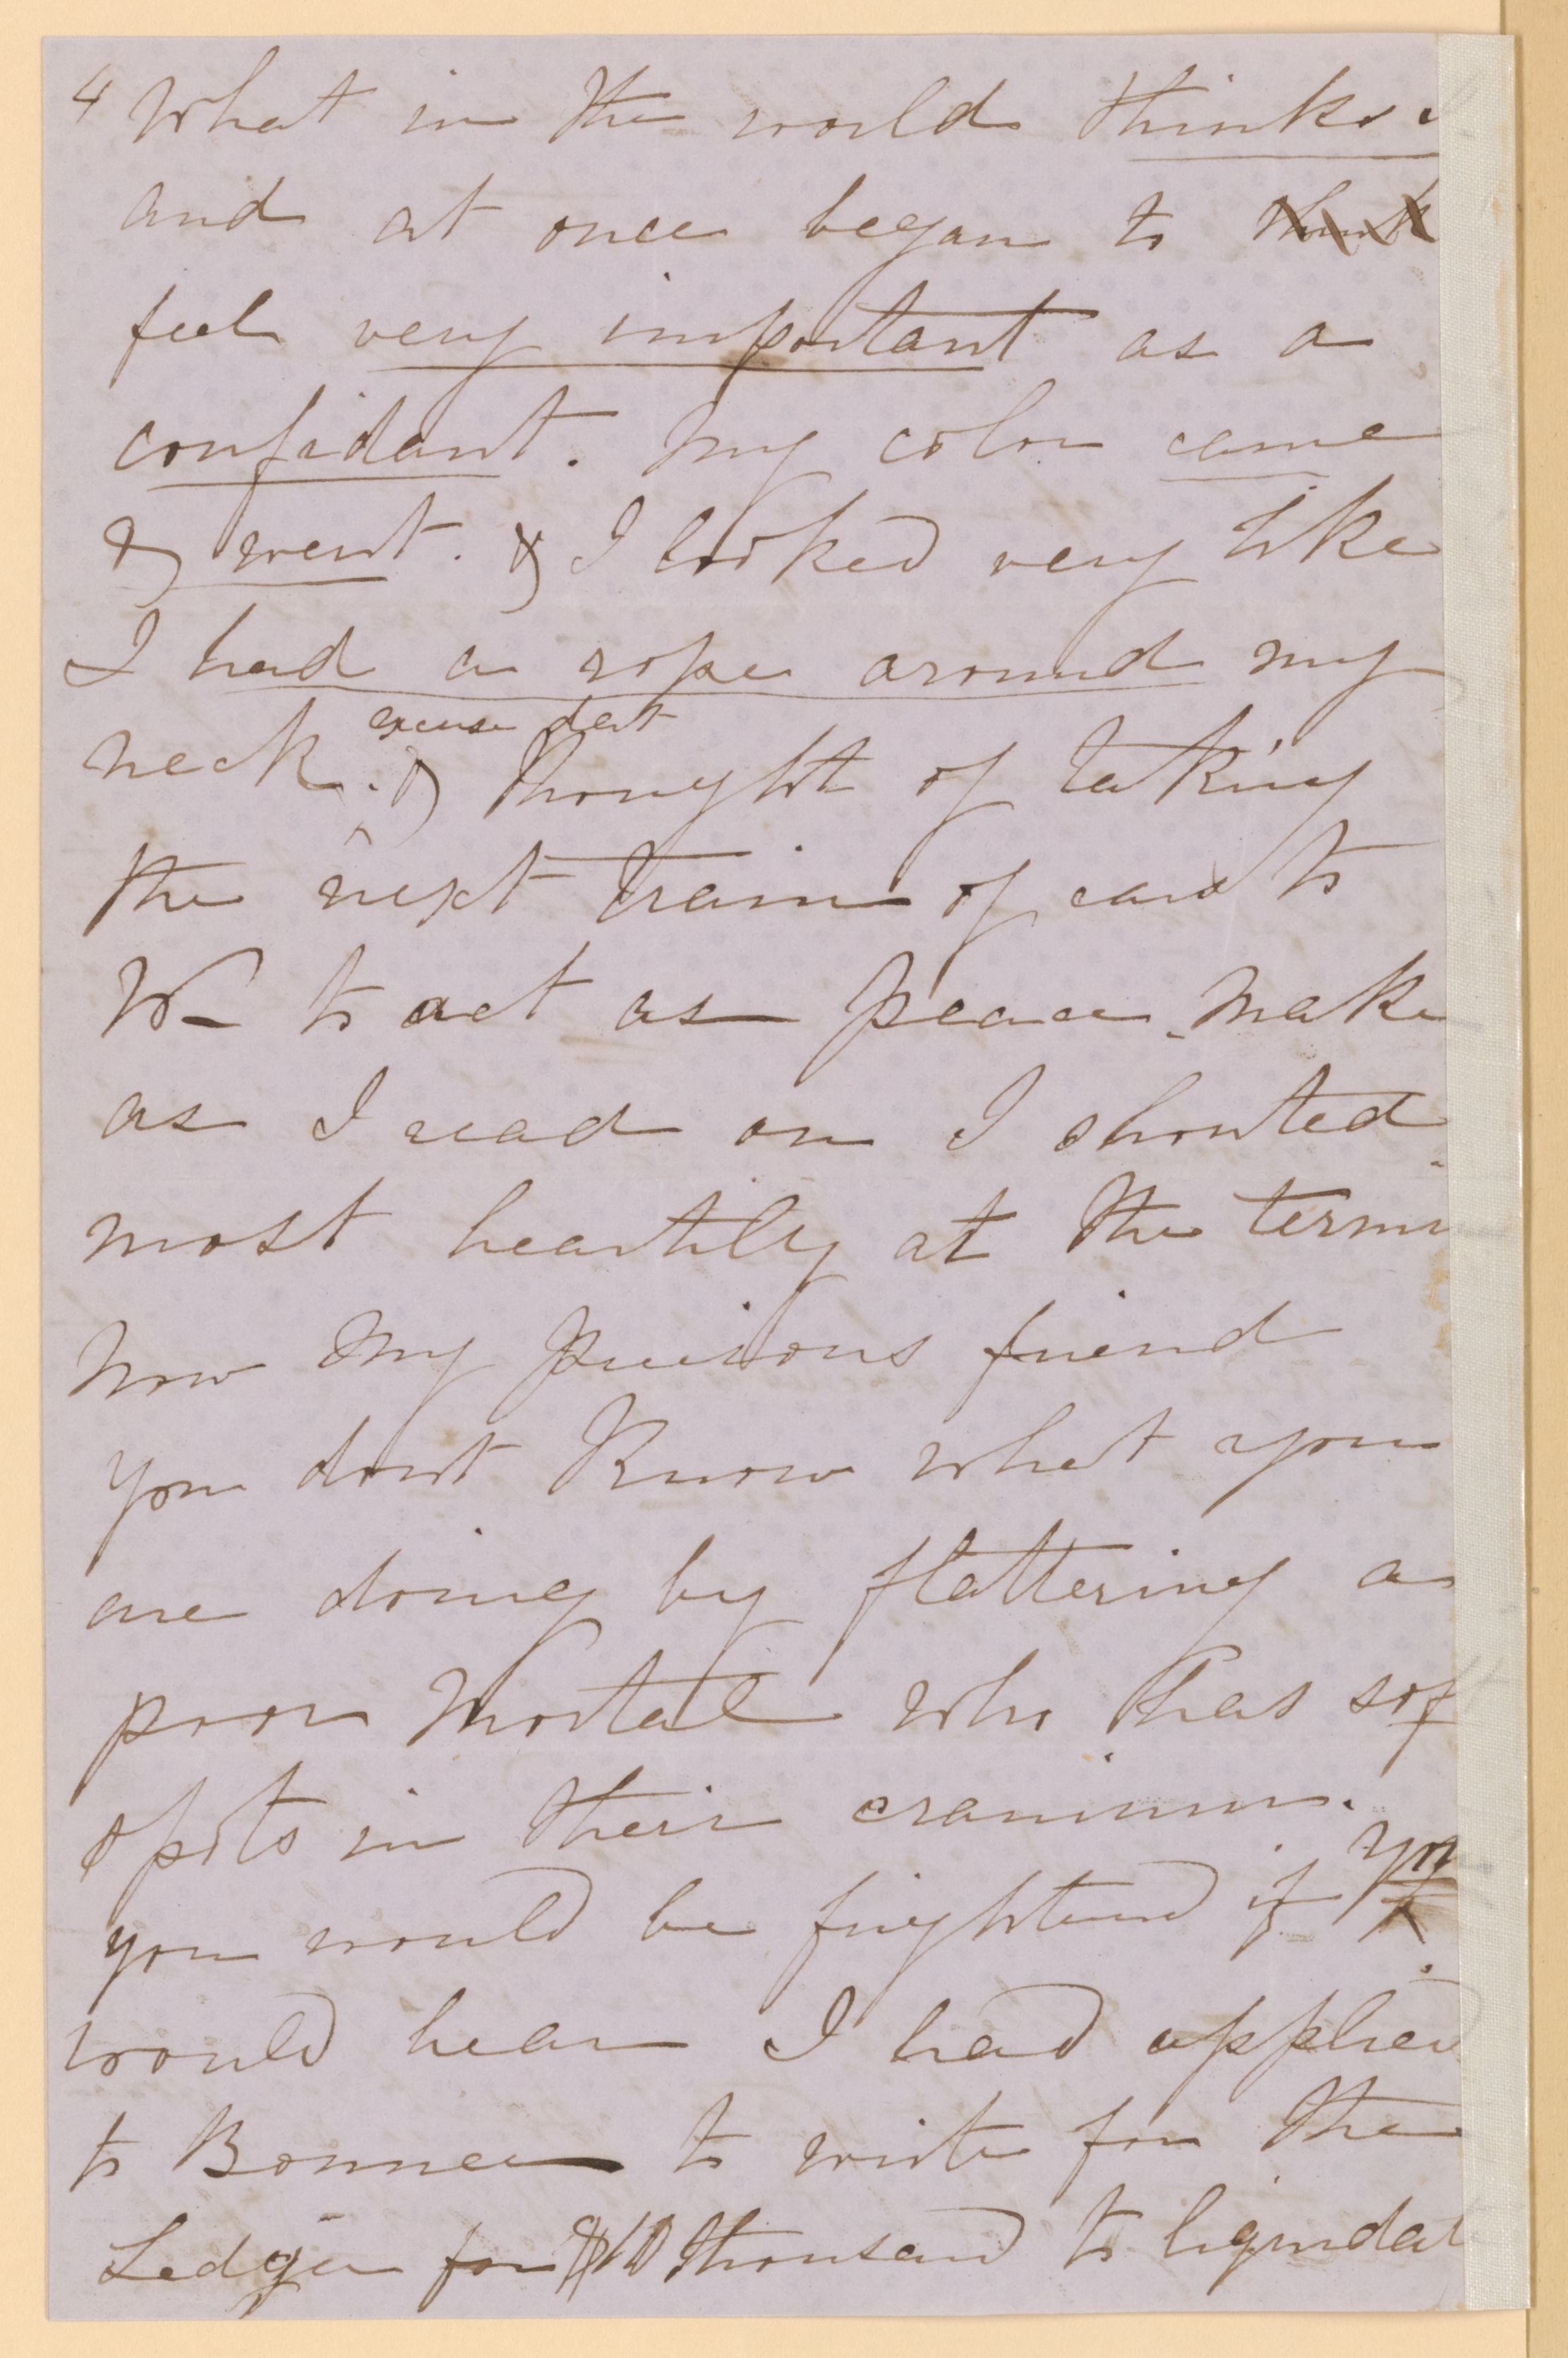 4 What in the world thinks I
and at once began to think
feel very important as a
confidant. My color came
& went. & I looked very like
I had a rope around my
neck. excuse dat & thought of taking
the next train of cars to
W– to act as peace make
as I read on I shouted
most heartily at the terms
Now my precious friend
you dont Know what you
are doing by flattering a
poor Mortal who has sof
spots in their cranium.
you would be frightend if you
would hear I had applied
to Bonner to write for the
Ledger for $10 thousand to liquidat